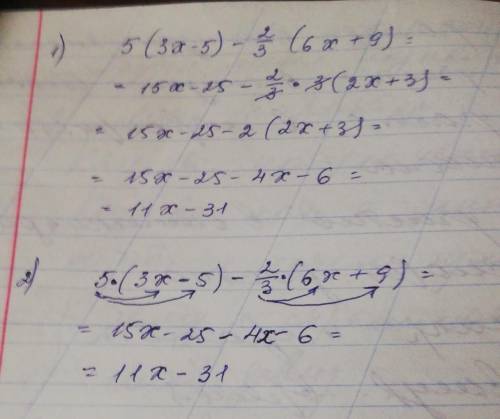 1) 5(3x-5) - 2/3 (6x+9) =
= 15x-25 - 2/3 · 3(2x+3) =
= 15x-25-2(2x+3) =
= 15x-25-4x-6 =
= 11x-31
2) 5·(3x-5) - 2/3·(6x+9) =
= 15x-25-4x-6 =
= 11x-31